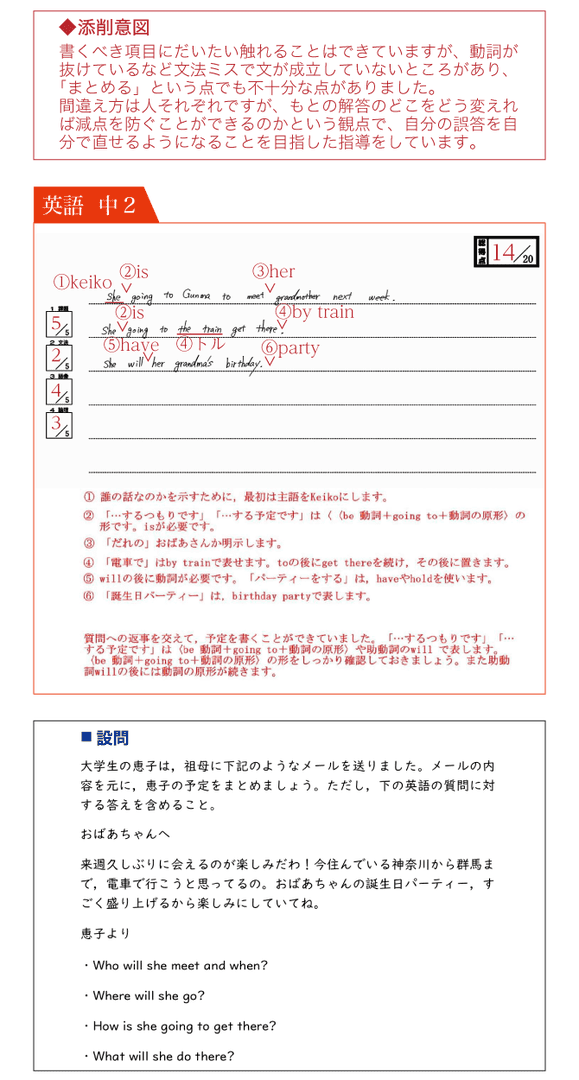 ◆添削意図
書くべき項目にだいたい触れることはできていますが、動詞が
抜けているなど文法ミスで文が成立していないところがあり、
「まとめる」という点でも不十分な点がありました。
間違え方は人それぞれですが、もとの解答のどこをどう変えれ
ば減点を防ぐことができるのかという観点で、自分の誤答を自
分で直せるようになることを目指した指導をしています。
英語 中2
総得点 14/20
②is ③her
①keiko
She going to Gunma to meet grandmother next week.
②is ④by train
1 課題 5/5
She going to the train get there.
⑤have ④トル ⑥party
2 文法 2/5
She will her grandma's birthday.
3 語彙 4/5
4 論理 3/5
① 誰の話なのかを示すために，最初は主語をKeikoにします。
② 「…するつもりです」「…する予定です」は〈〈be 動詞＋going to＋動詞の原形〉の
形です。isが必要です。
③ 「だれの」おばあさんか明示します。
④ 「電車で」はby trainで表せます。toの後にget thereを続け，その後に置きます。
⑤ willの後に動詞が必要です。「パーティーをする」は，haveやholdを使います。
⑥ 「誕生日パーティー」は，birthday partyで表します。
質問への返事を交えて，予定を書くことができていました。「…するつもりです」「…
する予定です」は〈be 動詞＋going to＋動詞の原形〉や助動詞のwill で表します。
〈be 動詞＋going to＋動詞の原形〉の形をしっかり確認しておきましょう。また助動
詞willの後には動詞の原形が続きます。
■ 設問
大学生の恵子は，祖母に下記のようなメールを送りました。メールの内
容を元に，恵子の予定をまとめましょう。ただし，下の英語の質問に対
する答えを含めること。
おばあちゃんへ
来週久しぶりに会えるのが楽しみだわ！今住んでいる神奈川から群馬ま
で，電車で行こうと思ってるの。おばあちゃんの誕生日パーティー，す
ごく盛り上げるから楽しみにしていてね。
恵子より
・Who will she meet and when?
・Where will she go?
・How is she going to get there?
・What will she do there?